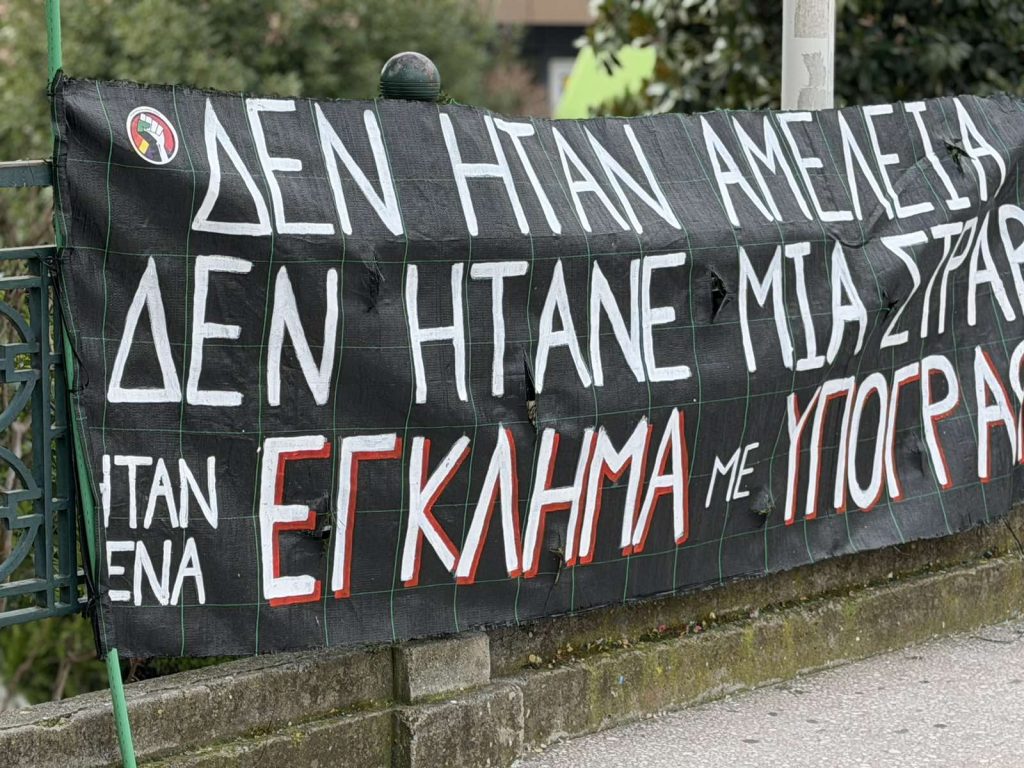 ΔΕΝ ΗΤΑΝ ΑΜΕΛΕΙΑ
ΔΕΝ ΗΤΑΝΕ ΜΙΑ ΣΤΡΑΒ
ΗΤΑΝ ΕΝΑ ΕΓΚΛΗΜΑ ΜΕ ΥΠΟΓΡΑΦ